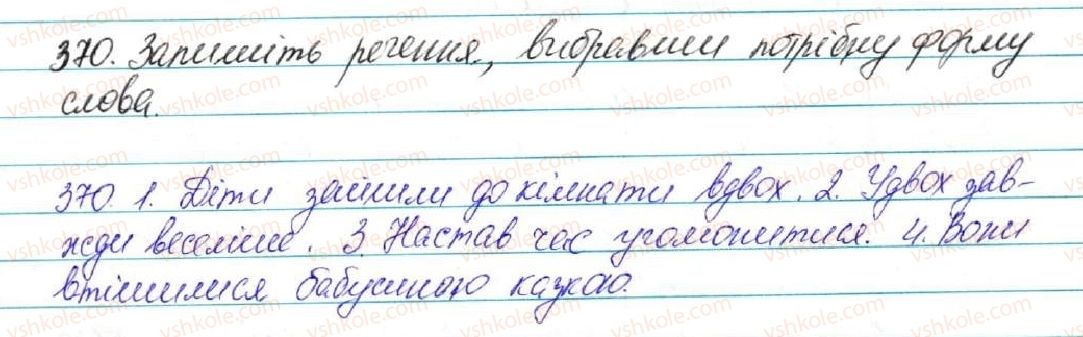 370. Запишіть речення, вибравши потрібну форму
слова.
370. 1. Діти зайшли до кімнати вдвох. 2. Удвох зав-
жди веселіше. 3. Настав час угомонитися. 4. Вони
втішилися бабусиною казкою.